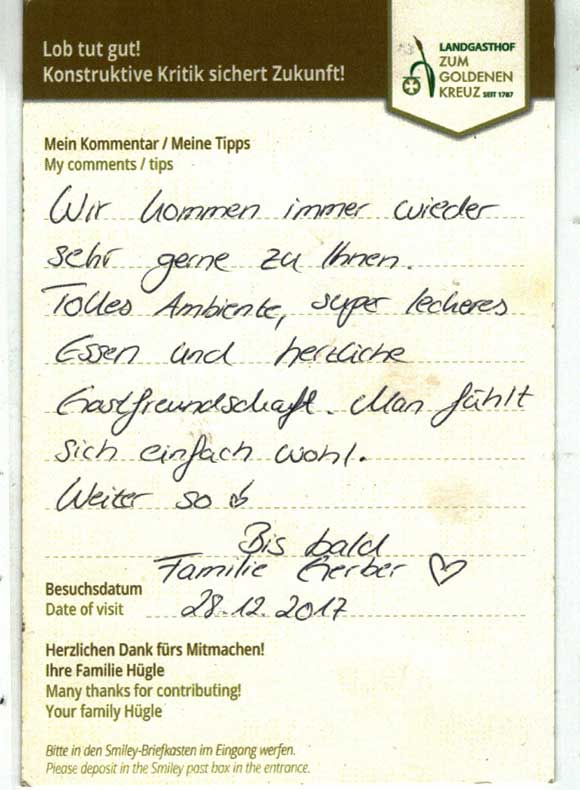 Lob tut gut!
Konstruktive Kritik sichert Zukunft!
LANDGASTHOF
ZUM
GOLDENEN
KREUZ SEIT 1787
Mein Kommentar / Meine Tipps
My comments / tips
Wir kommen immer wieder
sehr gerne zu Ihnen.
Tolles Ambiente, super leckeres
Essen und herzliche
Gastfreundschaft. Man fühlt
sich einfach wohl.
Weiter so
Bis bald
Familie Gerber ♡
Besuchsdatum
Date of visit 28.12.2017
Herzlichen Dank fürs Mitmachen!
Ihre Familie Hügle
Many thanks for contributing!
Your family Hügle
Bitte in den Smiley-Briefkasten im Eingang werfen.
Please deposit in the Smiley post box in the entrance.